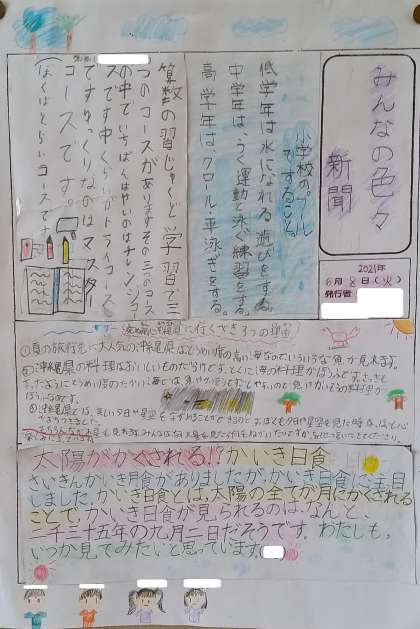 みんなの色々
新聞
2021年
6月8日(火)
発行者
小学校のプール
ですること。
低学年は水になれる遊びをする。
中学年は、うく運動と泳ぐ練習をする。
高学年は、クロール・平泳ぎをする。
算数の習じゅくど学習で三
つのコースがあります。その三つのコース
の中でいちばんはやいのはチャレンジコー
スです中くらいがトライコース
ですゆっくりなのはマスター
コースです。
(ぼくはトライコースです
沖縄県に行くべき3つの理由
①夏の旅行先に大人気の沖縄県はとうめい度の高い海なのでいろいろな魚が見えます。
②沖縄県の料理はおいしいものだらけです。とくに海の料理がほうふです。さっき
太陽がかくされる!?かいき日食
さいきんかいき月食がありましたが、かいき日食に注目
しました。かいき日食とは、太陽の全てが月にかくされる
ことで、かいき日食が見られるのは、なんと、
二千三十五年の九月二日だそうです。わたしも、
いつか見てみたいと思っています。